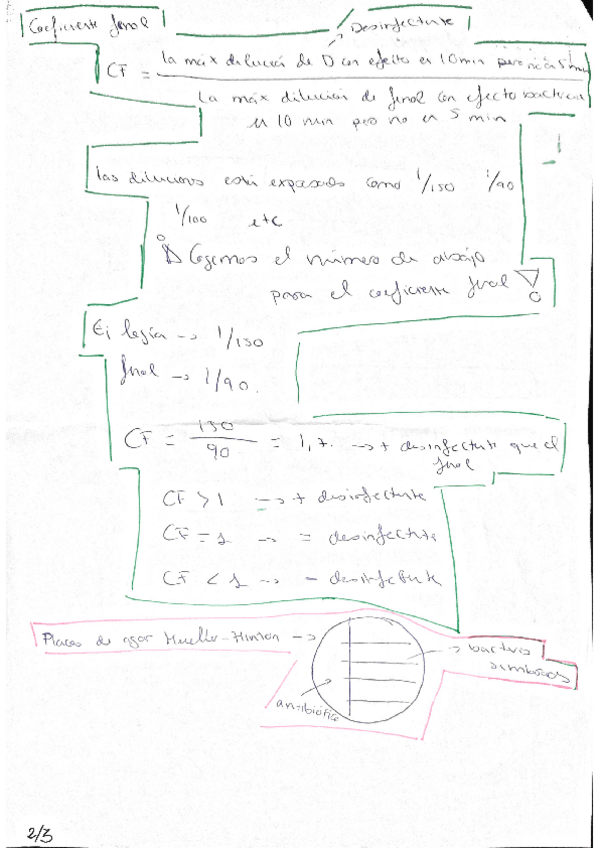 Coeficiente fenol
Desinfectante
CF = la máx dilución de D con efecto en 10 min pero no en 5 min
La máx dilución de fenol con efecto bacteria
en 10 min pero no en 5 min
las diluciones está expresados como 1/150 1/90
1/100 etc
¡Δ Cogemos el número de abajo
para el coeficiente fenol ∇!
Ej lejía -> 1/150
fenol -> 1/90.
CF = 150/90 = 1,7. -> + desinfectante que el
fenol
CF > 1 -> + desinfectante
CF = 1 -> = desinfectante
CF < 1 -> - desinfectante
Placas de agar Mueller-Hinton ->
-> bacterias
sembradas
antibiótico
2/3